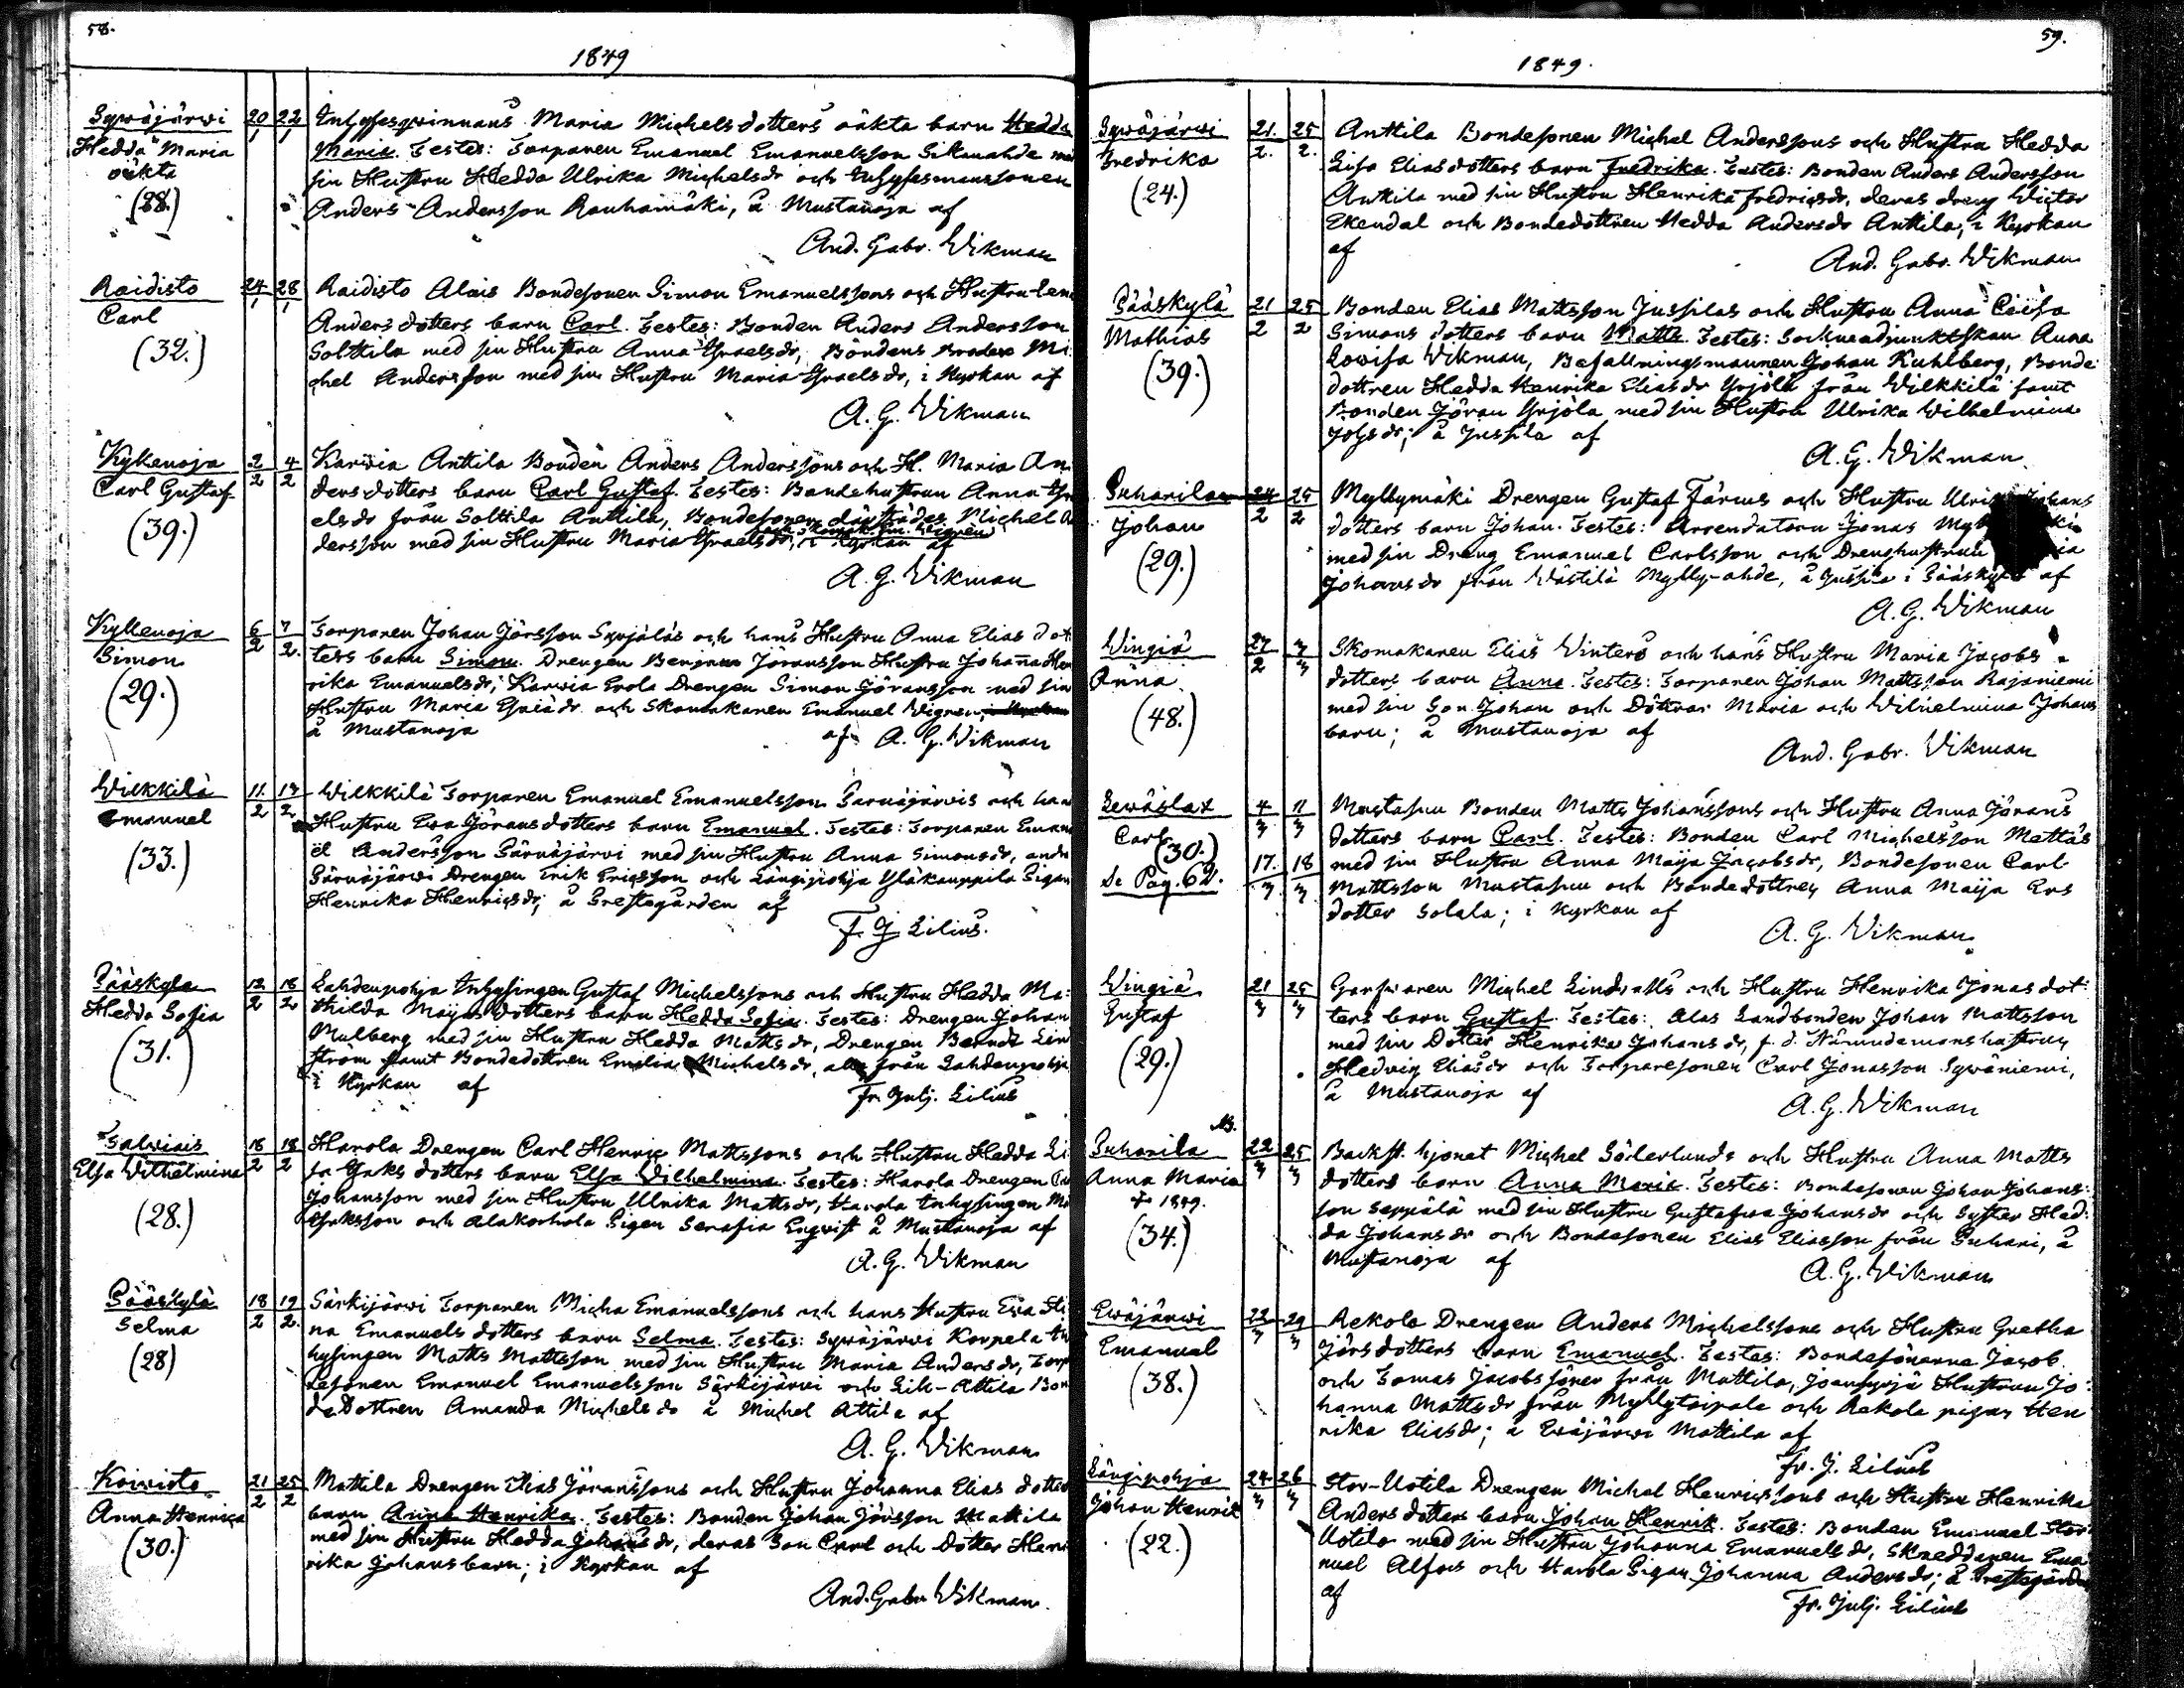 58.
1849
Sywäjärwi 20/1 22/1 Inhysesqwinnans Maria Michelsdotters oäkta barn Hedda
Hedda Maria Maria. Testes: Torparen Emanuel Emanuelsson
oäkta sin Hustru Hedda Ulrika Michelsdr och Inhysesmanssonen
(28.) Anders Andersson Rauhamäki, å Mustanoja af
And. Gabr. Wikman
Raidisto 24/1 28/1 Raidisto Alais Bondesonen Simon Emanuelssons och Hustru
Carl Anders dotters barn Carl. Testes: Bonden Anders Andersson
(32.) Solttila med sin Hustru Anna Israelsdr, Böndens Broder Mi-
chel Andersson med sin Hustru Maria Israelsdr, i Kyrkan af
A. G. Wikman
Kykenoja 2/2 4/2 Karwia Anttila Bonden Anders Anderssons och H. Maria An-
Carl Gustaf dersdotters barn Carl Gustaf. Testes: Bondehustrun Anna
(39.) elsdr från Solttila Anttila, Bondesonen därstädes Michel
dersson med sin Hustru Maria Israelsdr, i Kyrkan af
A. G. Wikman
Kyllenoja 6/2 7/2 Torparen Johan Jörsson Syrjäläs och hans Hustru Anna Elias dot-
Simon ters barn Simon. Drengen Benjamin Jöransson Hustru Johanna Hen
(29.) rika Emanuelsdr, Karwia Erola Drengen Simon Göransson med sin
Hustru Maria Esaiädr och Skomakaren Emanuel Wigren,
å Mustanoja af A. G. Wikman
Wilkkilä 11/2 17/2 Wilkkilä Torparen Emanuel Emanuelsson Särnäjärvis och
Emanuel Hustru Ewa Göransdotters barn Emanuel. Testes: Torparen Eman
(33.) el Andersson Särnäjärwi med sin Hustru Anna Simonsdr,
Särnäjärwi Drengen Erik Ericsson och Längipohja Yläkauppila Pigan
Henrika Henricsdr; å Prestegården af
F. J. Lilius.
Pääskylä 12/2 18/2 Lahdenpohja Inhysingen Gustaf Michelssons och Hustru Hedda Ma-
Hedda Sofia thilda Maijas dotters barn Hedda Sofia. Testes: Drengen Johan
(31.) Mulberg med sin Hustru Hedda Mattsdr, Drengen Berndt Lin
ström samt Bondedottren Emilia Michelsdr, alla från Lahdenpohja
i Kyrkan af Fr. Julj. Lilius
Talwiais 16/2 18/2 Harola Drengen Carl Henric Mattssons och Hustru Hedda Li-
Elsa Wilhelmina sa Isaks dotters barn Elsa Wilhelmina. Testes: Harola Drengen
(28.) Johansson med sin Hustru Ulrika Mattsdr, Harola Inhysingen
Isaksson och Alakorhola Pigan Serafia Engwist å Mustanoja af
A. G. Wikman
Pääskylä 18/2 19/2 Särkijärwi Torparen Micha Emanuelssons och hans Hustru Ewa Sti
Selma na Emanuels dotters barn Selma. Testes: Sywäjärwi Korpela In
(28) hysingen Matts Mattsson med sin Hustru Maria Andersdr, Torp
aresonen Emanuel Emanuelsson Särkijärwi och Lill-Attila Bon
de Dottren Amanda Michelsdr å Michel Attila af
A. G. Wikman
Koiwisto 21/2 25/2 Mattila Drengen Elias Jöranssons och Hustru Johanna Elias dotters
Anna Henrica barn Anna Henrika. Testes: Bonden Johan Jörsson Mattila
(30.) med sin Hustru Hedda Johansdr, deras Son Carl och Dotter Hen
rika Johans barn; i Kyrkan af
And. Gabr. Wikman.
59.
1849.
Sywäjärwi 21./2. 25/2. Anttila Bondesonen Michel Anderssons och Hustru Hedda
Fredrika Lisa Eliasdotters barn Fredrika. Testes: Bonden Anders Andersson
(24.) Anttila med sin Hustru Henrika Fredricsdr, deras dreng Wictor
Ekendal och Bondedottren Hedda Andersdr Anttila, i Kyrkan
af And. Gabr. Wikman
Pääskylä 21/2 25/2 Bonden Elias Mattsson Jussilas och Hustru Anna Caisa
Mathias Simons dotters barn Matts. Testes: Sockneadjunktskan Anna
(39.) Lowisa Wikman, Befallningsmannen Johan Kuhlberg, Bonde-
dottren Hedda Henrika Eliasdr Yrjölä från Wilkkilä samt
Bonden Jöran Yrjölä med sin Hustru Ulrika Wilhelmina
Johsdr; å Jussila af
A. G. Wikman
Suharila 24/2 25/2 Myllymäki Drengen Gustaf Färms och Hustru Johans
Johan dotters barn Johan. Testes: Arrendatorn Jonas
(29.) med sin Dreng Emanuel Carlsson och Drenghustrun
Johansdr från Wästilä Mylly-ahde, å Jussila i Pääskylä af
A. G. Wikman
Wingiä 27/2 4/3 Skomakaren Elias Winters och hans Hustru Maria Jacobs
Anna dotters barn Anna. Testes: Torparen Johan Mattsson Rajaniemi
(48.) med sin Son Johan och Döttrar Maria och Wilhelmina Johans
barn; å Mustanoja af
And. Gabr. Wikman
Lewäslax 4/3 11/3 Mustasuu Bonden Matts Johanssons och Hustru Anna Jörans
Carl dotters barn Carl. Testes: Bonden Carl Michelsson Mattas
(30.) 17./3 18/3 med sin Hustru Anna Maija Jacobsdr, Bondesonen Carl
Se Pag. 62. Mattsson Mustasuu och Bondedottren Anna Maija Ers
dotter Solala; i Kyrkan af
A. G. Wikman
Wingiä 21/3 25/3 Garfwaren Michel Lindvalls och Hustru Henrika Jonas dot-
Gustaf ters barn Gustaf. Testes: Alas Landbonden Johan Mattsson
(29.) med sin Dotter Henrika Johansdr, f. d. Nämndemanshustrun
Hedvig Eliasdr och Torparesonen Carl Jonasson Sywäniemi,
å Mustanoja af
A. G. Wikman
Suharila 22/3 25/3 Backst. hjonet Michel Söderlunds och Hustru Anna Matts
Anna Maria dotters barn Anna Maria. Testes: Bondesonen Johan Johans-
† 1849. son Seppälä med sin Hustru Gustafwa Johansdr och Syster Hed-
(34.) da Johansdr och Bondesonen Elias Eliasson från Suhari, å
Mustanoja af
A. G. Wikman
Ewäjärwi 22/3 29/3 Rekola Drengen Anders Michelssons och Hustru Gretha
Emanuel Jörs dotters barn Emanuel. Testes: Bondesönerna Jacob
(38.) och Tomas Jacobssöner från Mattila, Hustrun Jo-
hanna Mattsdr från Myllytaipale och Rekola pigan Hen
rika Eliasdr; å Ewäjärwi Mattila af
Fr. J. Lilius
Längipohja 24/3 26/3 Stor-Uotila Drengen Michel Henricssons och Hustru Henrika
Johan Henrik Anders dotters barn Johan Henrik. Testes: Bonden Emanuel Stor
(22.) Uotila med sin Hustru Johanna Emanuelsdr, Skreddaren Ema
nuel Alfors och Harola Pigan Johanna Andersdr; å Prestegården
af Fr. Julj. Lilius